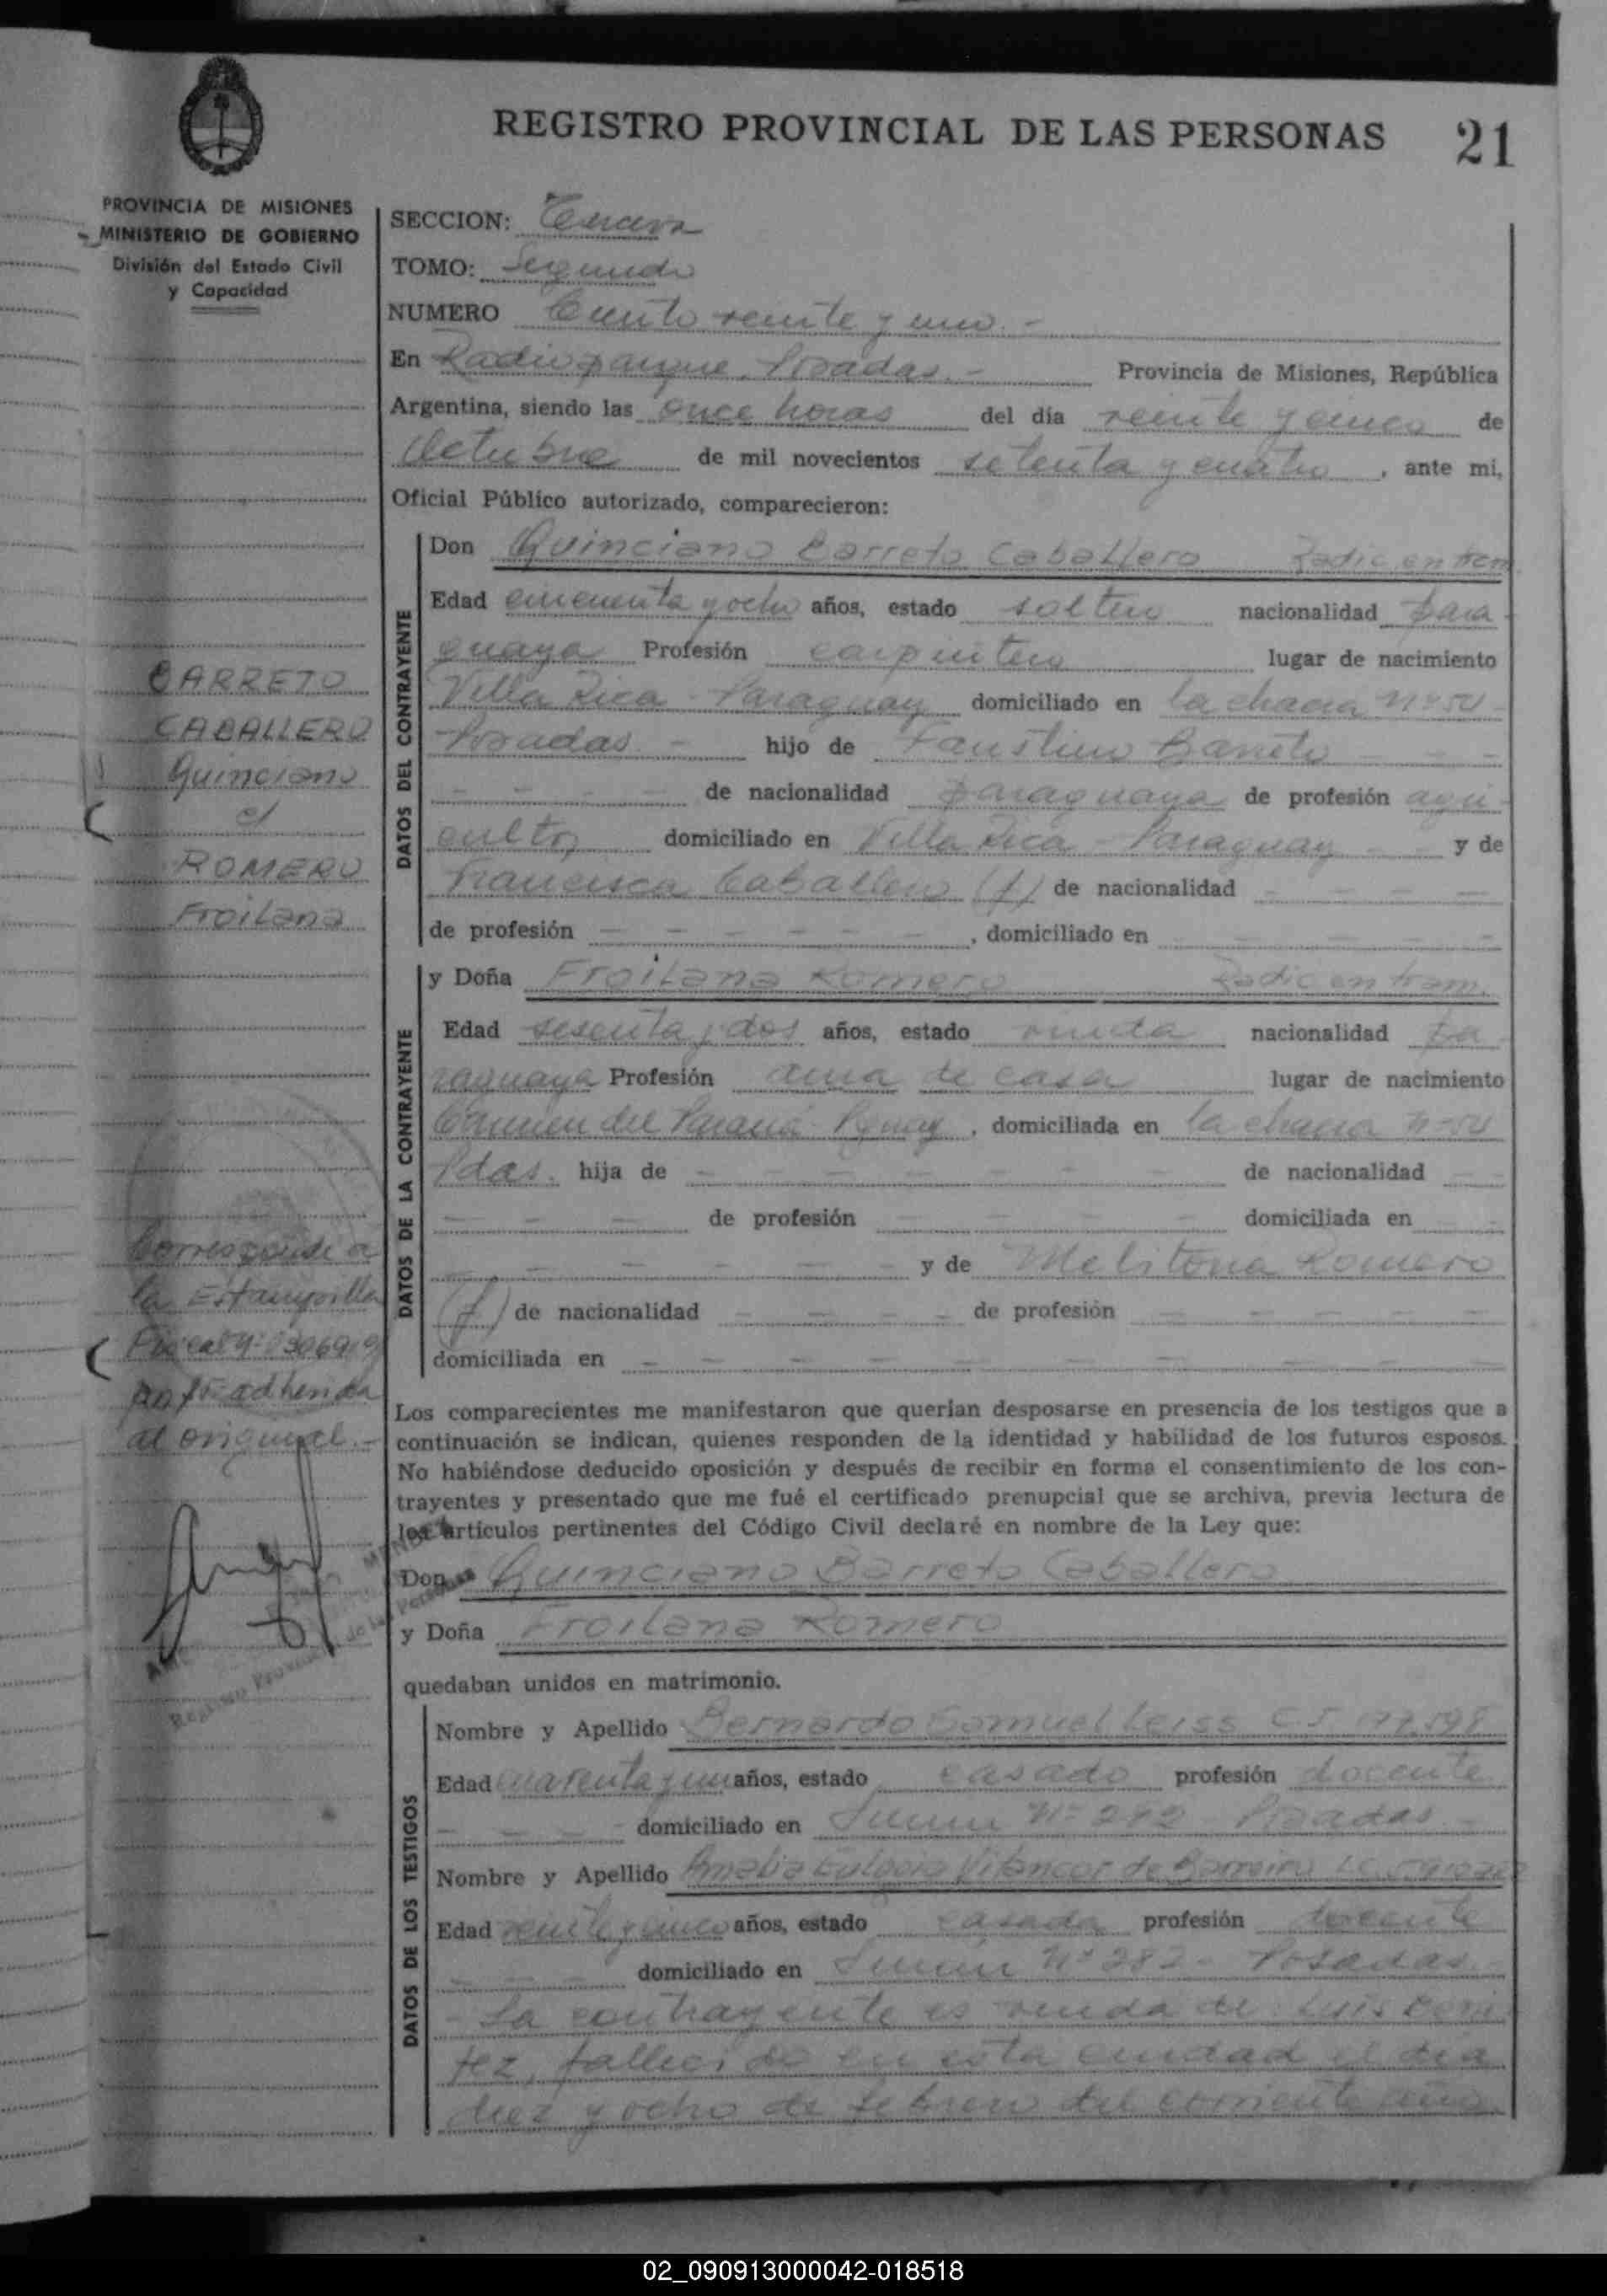 REGISTRO PROVINCIAL DE LAS PERSONAS 21
PROVINCIA DE MISIONES
MINISTERIO DE GOBIERNO
División del Estado Civil
y Capacidad
SECCION: Tercera
TOMO: Segundo
NUMERO Ciento veinte y uno.-
En Radioparque. Posadas.- Provincia de Misiones, República
Argentina, siendo las once horas del día veinte y cinco de
Octubre de mil novecientos setenta y cuatro, ante mi,
Oficial Público autorizado, comparecieron:
DATOS DEL CONTRAYENTE
Don Quinciano Barreto Caballero Radic. en trám
Edad cincuenta y ocho años, estado soltero nacionalidad para
guaya Profesión carpintero lugar de nacimiento
Villa Rica - Paraguay domiciliado en la chacra Nº 54 -
Posadas - hijo de Faustino Barreto - - -
- - - - de nacionalidad paraguaya de profesión agri-
cultor domiciliado en Villa Rica - Paraguay - - y de
Francisca Caballero (f) de nacionalidad - - - -
de profesión - - - - - -, domiciliado en - - - - -
BARRETO
CABALLERO
Quinciano
c/
ROMERO
Froilana
DATOS DE LA CONTRAYENTE
y Doña Froilana Romero Radic en tram.
Edad sesenta y dos años, estado viuda nacionalidad pa
raguaya Profesión ama de casa lugar de nacimiento
Carmen del Paraná - Pguay, domiciliada en la chacra Nº 54
Pdas. hija de - - - - - - - - de nacionalidad - -
- - - de profesión - - - - domiciliada en - -
- - - - - - y de Melitona Romero
(f) de nacionalidad - - - - de profesión - - - - -
domiciliada en - - - - - - - - - - -
Corresponde a
la Estampilla
Fiscal Nº
adherida
al original.-
Los comparecientes me manifestaron que querían desposarse en presencia de los testigos que a
continuación se indican, quienes responden de la identidad y habilidad de los futuros esposos.
No habiéndose deducido oposición y después de recibir en forma el consentimiento de los con-
trayentes y presentado que me fué el certificado prenupcial que se archiva, previa lectura de
los artículos pertinentes del Código Civil declaré en nombre de la Ley que:
Don Quinciano Barreto Caballero
y Doña Froilana Romero
quedaban unidos en matrimonio.
DATOS DE LOS TESTIGOS
Nombre y Apellido Bernardo Samuel Leiss
Edad cuarenta y un años, estado casado profesión docente
- - - - domiciliado en Junín Nº 282 - Posadas -
Nombre y Apellido Amalia Eulogia Vitancor de Barreiro
Edad veinte y cinco años, estado casada profesión docente
- - - domiciliado en Junín Nº 282 - Posadas.-
- La contrayente es viuda de: Luis Bení
tez, fallecido en esta ciudad el día
diez y ocho de febrero del corriente año.
02_090913000042-018518